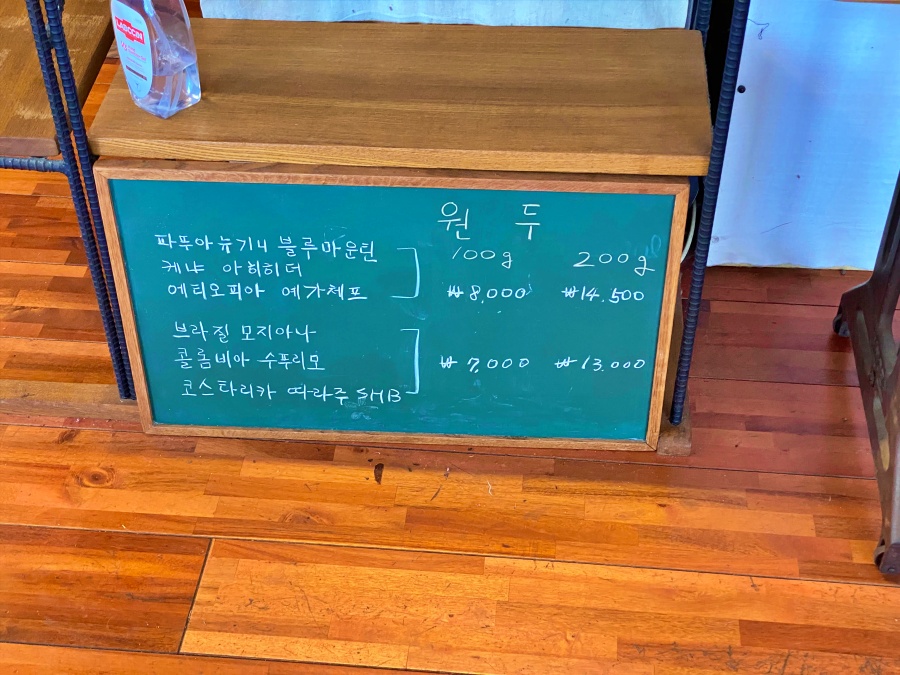 LABCCIN
원 두
100g 200g
파푸아뉴기니 블루마운틴
케냐 아히히더
에티오피아 예가체프 ₩8,000 ₩14.500
브라질 모지아나
콜롬비아 수푸리모 ₩7,000 ₩13.000
코스타리카 따라주 SHB